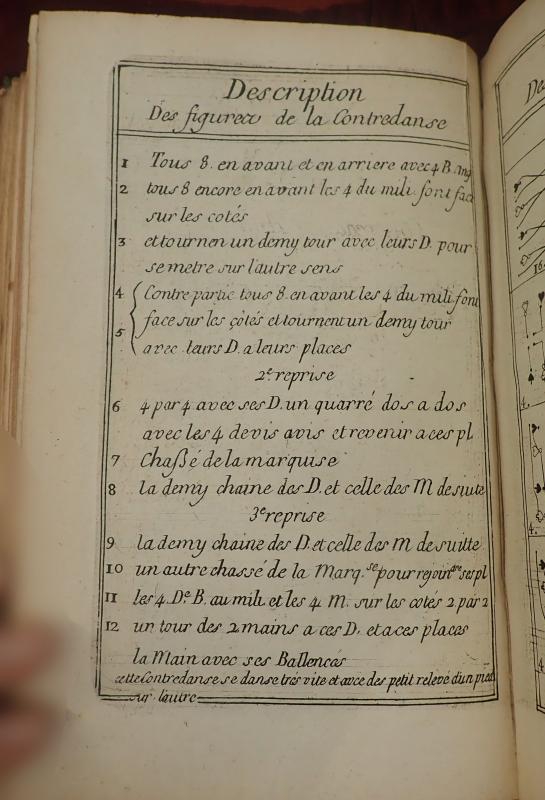 Description
Des figurees de la Contredanse
1 Tous 8. en avant et en arriere avec 4 B.
2 tous 8 encore en avant les 4 du mili. font face
sur les cotés
3 et tournen un demy tour avec leurs D. pour
se metre sur l'autre sens
4 Contre partie tous 8. en avant les 4 du mili font
5 face sur les côtés et tournent un demy tour
avec leurs D. a leurs places
2e reprise
6 4 par 4 avec ses D. un quarré dos a dos
avec les 4 de vis avis et revenir a ces pl
7 Chassé de la marquise
8 la demy chaine des D. et celle des M de suite
3e reprise
9 la demy chaine des D. et celle des M. de suitte
10 un autre chassé de la Marq.se pour rejoindre ses pl
11 les 4. De B. au mili et les 4 M. sur les cotés 2 par 2
12 un tour des 2 mains a ces D. et a ces places
la Main avec ses Ballencés
cette Contredanse se danse très vite et avce des petit relevé d'un pied
sur l'autre